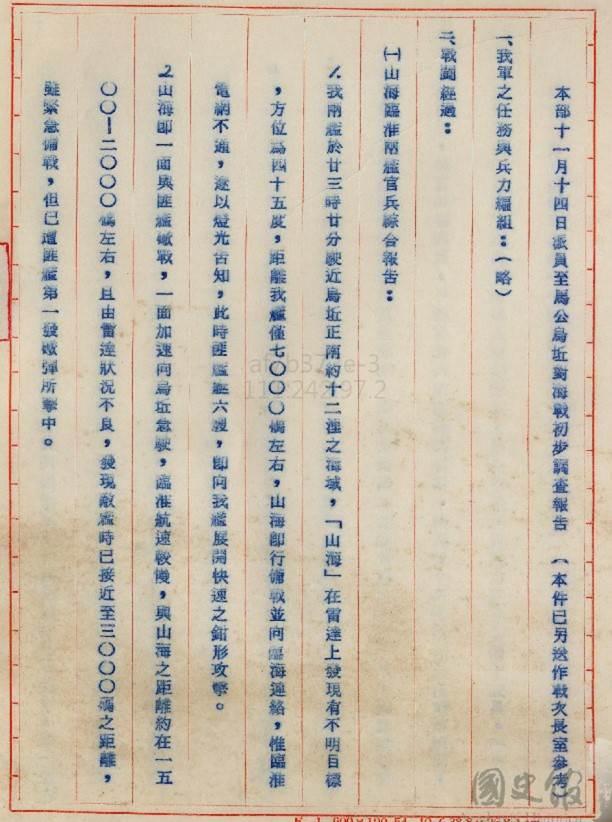 本部十一月十四日派員至馬公烏坵對海戰初步調查報告　（本件已另送作戰次長室參考）
一、我軍之任務與兵力編組：（略）
二、戰鬭經過：
㈠山海臨淮兩艦官兵綜合報告：
1.我兩艦於廿三時廿分駛近烏坵正南約十二浬之海域，「山海」在雷達上發現有不明目標
，方位為四十五度，距離我艦僅七〇〇〇碼左右，山海即行備戰並向臨海連絡，惟臨淮
電網不通，遂以燈光告知，此時匪艦艇六艘，即向我艦展開快速之鉗形攻擊。
2.山海即一面與匪艦礮戰，一面加速向烏坵急駛，臨淮航速較慢，與山海之距離約在一五
〇〇—二〇〇〇碼左右，且由雷達狀況不良，發現敵艦時已接近至三〇〇〇碼之距離，
雖緊急備戰，但已遭匪艦第一發礮彈所擊中。
國史館